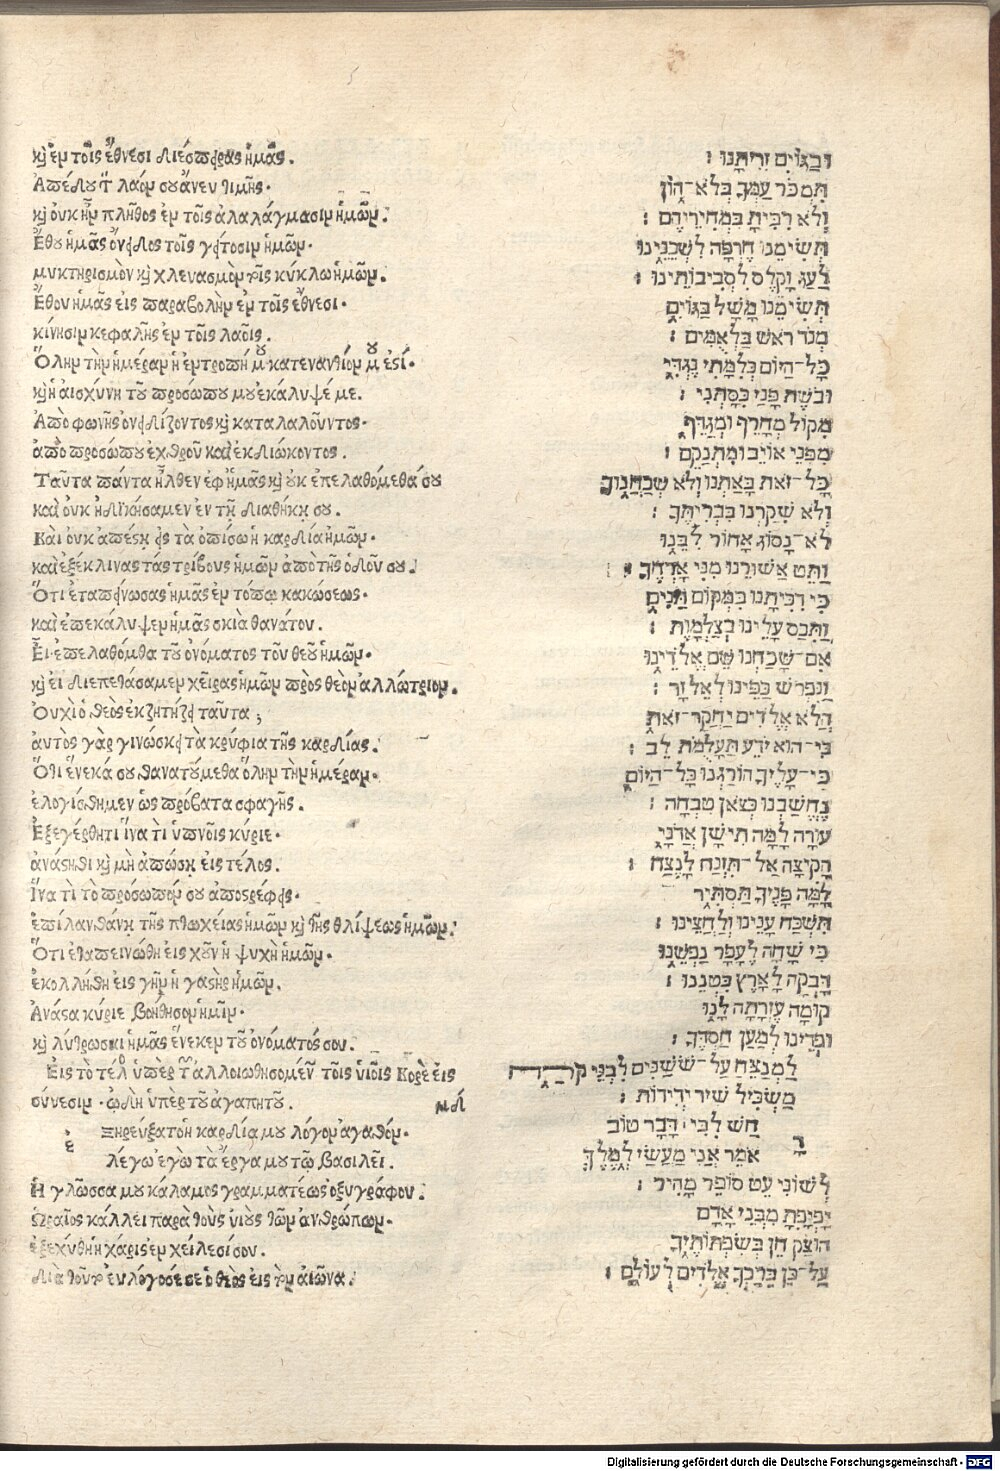 κ̀ ἐν τοῖς ἔθνεσι διέσπειρας ἡμᾶς.
Ἀπέδου τ̀ λαόν σου ἄνευ τιμῆς.
κ̀ οὐκ ἦν πλῆθος ἐν τοῖς ἀλαλάγμασιν ἡμῶν.
Ἔθου ἡμᾶς ὄνειδος τοῖς γείτοσιν ἡμῶν.
μυκτηρισμὸν κ̀ χλευασμὸν τοῖς κύκλω ἡμῶν.
Ἔθου ἡμᾶς εἰς παραβολὴν ἐν τοῖς ἔθνεσι.
κίνησιν κεφαλῆς ἐν τοῖς λαοῖς.
Ὅλην τὴν ἡμέραν ἡ ἐντροπή μου κατεναντίον μου ἐστί.
κ̀ ἡ αἰσχύνη τοῦ προσώπου μου ἐκάλυψέ με.
Ἀπὸ φωνῆς ὀνειδίζοντος κ̀ καταλαλοῦντος.
ἀπὸ προσώπου ἐχθροῦ καὶ ἐκδιώκοντος.
Ταῦτα πάντα ἦλθεν ἐφ ἡμᾶς κ̀ οὐκ ἐπελαθόμεθά σου
καὶ οὐκ ἠδικήσαμεν ἐν τῇ διαθήκῃ σου.
Καὶ οὐκ ἀπέστη εἰς τὰ ὀπίσω ἡ καρδία ἡμῶν.
καὶ ἐξέκλινας τὰς τρίβους ἡμῶν ἀπὸ τῆς ὁδοῦ σου.
Ὅτι ἐταπείνωσας ἡμᾶς ἐν τόπῳ κακώσεως.
καὶ ἐπεκάλυψεν ἡμᾶς σκιὰ θανάτου.
Εἰ ἐπελαθόμεθα τοῦ ὀνόματος τοῦ θεοῦ ἡμῶν.
κ̀ εἰ διεπετάσαμεν χεῖρας ἡμῶν πρὸς θεὸν ἀλλότριον.
Οὐχὶ ὁ θεὸς ἐκζητήσει ταῦτα;
αὐτὸς γὰρ γινώσκει τὰ κρύφια τῆς καρδίας.
Ὅτι ἕνεκά σου θανατούμεθα ὅλην τὴν ἡμέραν.
ἐλογίσθημεν ὡς πρόβατα σφαγῆς.
Ἐξεγέρθητι ἵνα τὶ ὑπνοῖς κύριε.
ἀνάστηθι κ̀ μὴ ἀπώσῃ εἰς τέλος.
Ἵνα τὶ τὸ πρόσωπόν σου ἀποστρέφεις.
ἐπιλανθάνῃ τῆς πτωχείας ἡμῶν κ̀ τῆς θλίψεως ἡμῶν.
Ὅτι ἐταπεινώθη εἰς χοῦν ἡ ψυχὴ ἡμῶν.
ἐκολλήθη εἰς γῆν ἡ γαστὴρ ἡμῶν.
Ἀνάστα κύριε βοήθησον ἡμῖν.
κ̀ λύτρωσαι ἡμᾶς ἕνεκεν τοῦ ὀνόματός σου.
Εἰς τὸ τέλ ὑπὲρ τ̃ ἀλλοιωθησομέν τοῖς υἱοῖς Κορὲ εἰς
σύνεσιν. ᾠδὴ ὑπὲρ τοῦ ἀγαπητοῦ. μδ
ἐ Ξηρεύξατο ἡ καρδία μου λόγον ἀγαθόν.
λέγω ἐγὼ τὰ ἔργα μου τῷ βασιλεῖ.
Ἡ γλῶσσα μου κάλαμος γραμματέως ὀξυγράφου.
Ὡραῖος κάλλει παρὰ τοὺς υἱοὺς τῶν ἀνθρώπων.
ἐξεχύθη ἡ χάρις ἐν χείλεσί σου.
διὰ τοῦτο εὐλόγησέ σε ὁ θεὸς εἰς τὸν αἰῶνα.
וּבַגּוֹיִם זֵרִיתָנוּ :
תִּמְכֹּר עַמְּךָ בְּלֹא־הוֹן
וְלֹא רִבִּיתָ בִּמְחִירֵיהֶם :
תְּשִׂימֵנוּ חֶרְפָּה לִשְׁכֵנֵינוּ
לַעַג וָקֶלֶס לִסְבִיבוֹתֵינוּ :
תְּשִׂימֵנוּ מָשָׁל בַּגּוֹיִם
מְנֹד רֹאשׁ בַּלְאֻמִּים :
כָּל־הַיּוֹם כְּלִמָּתִי נֶגְדִּי
וּבֹשֶׁת פָּנַי כִּסָּתְנִי :
מִקּוֹל מְחָרֵף וּמְגַדֵּף
מִפְּנֵי אוֹיֵב וּמִתְנַקֵּם :
כָּל־זֹאת בָּאַתְנוּ וְלֹא שְׁכַחֲנוּךָ
וְלֹא שִׁקַּרְנוּ בִּבְרִיתֶךָ :
לֹא־נָסוֹג אָחוֹר לִבֵּנוּ
וַתֵּט אֲשׁוּרֵנוּ מִנִּי אָרְחֶךָ :
כִּי דִכִּיתָנוּ בִּמְקוֹם תַּנִּים
וַתְּכַס עָלֵינוּ בְצַלְמָוֶת :
אִם־שָׁכַחְנוּ שֵׁם אֱלֹדֵינוּ
וַנִּפְרֹשׂ כַּפֵּינוּ לְאֵל זָר :
הֲלֹא אֱלֹדִים יַחֲקָר־זֹאת
כִּי־הוּא יֹדֵעַ תַּעֲלֻמוֹת לֵב :
כִּי־עָלֶיךָ הוֹרַגְנוּ כָל־הַיּוֹם
נֶחְשַׁבְנוּ כְּצֹאן טִבְחָה :
עוּרָה לָמָּה תִישַׁן אֲדֹנָי
הָקִיצָה אַל־תִּזְנַח לָנֶצַח :
לָמָּה פָנֶיךָ תַסְתִּיר
תִּשְׁכַּח עָנְיֵנוּ וְלַחֲצֵינוּ :
כִּי שָׁחָה לֶעָפָר נַפְשֵׁנוּ
דָּבְקָה לָאָרֶץ בִּטְנֵנוּ :
קוּמָה עֶזְרָתָה לָּנוּ
וּפְדֵינוּ לְמַעַן חַסְדֶּךָ :
לַמְנַצֵּחַ עַל־שֹׁשַׁנִּים לִבְנֵי קֹרַח
מַשְׂכִּיל שִׁיר יְדִידוֹת :
רָ חַשׁ לִבִּי דָּבָר טוֹב
אֹמֵר אֲנִי מַעֲשַׂי לְמֶלֶךְ
לְשׁוֹנִי עֵט סוֹפֵר מָהִיר :
יָפְיָפִתָ מִבְּנֵי אָדָם
הוּצַק חֵן בְּשִׂפְתוֹתֶיךָ
עַל־כֵּן בֵּרַכְךָ אֱלֹדִים לְעוֹלָם :
Digitalisierung gefördert durch die Deutsche Forschungsgemeinschaft - DFG